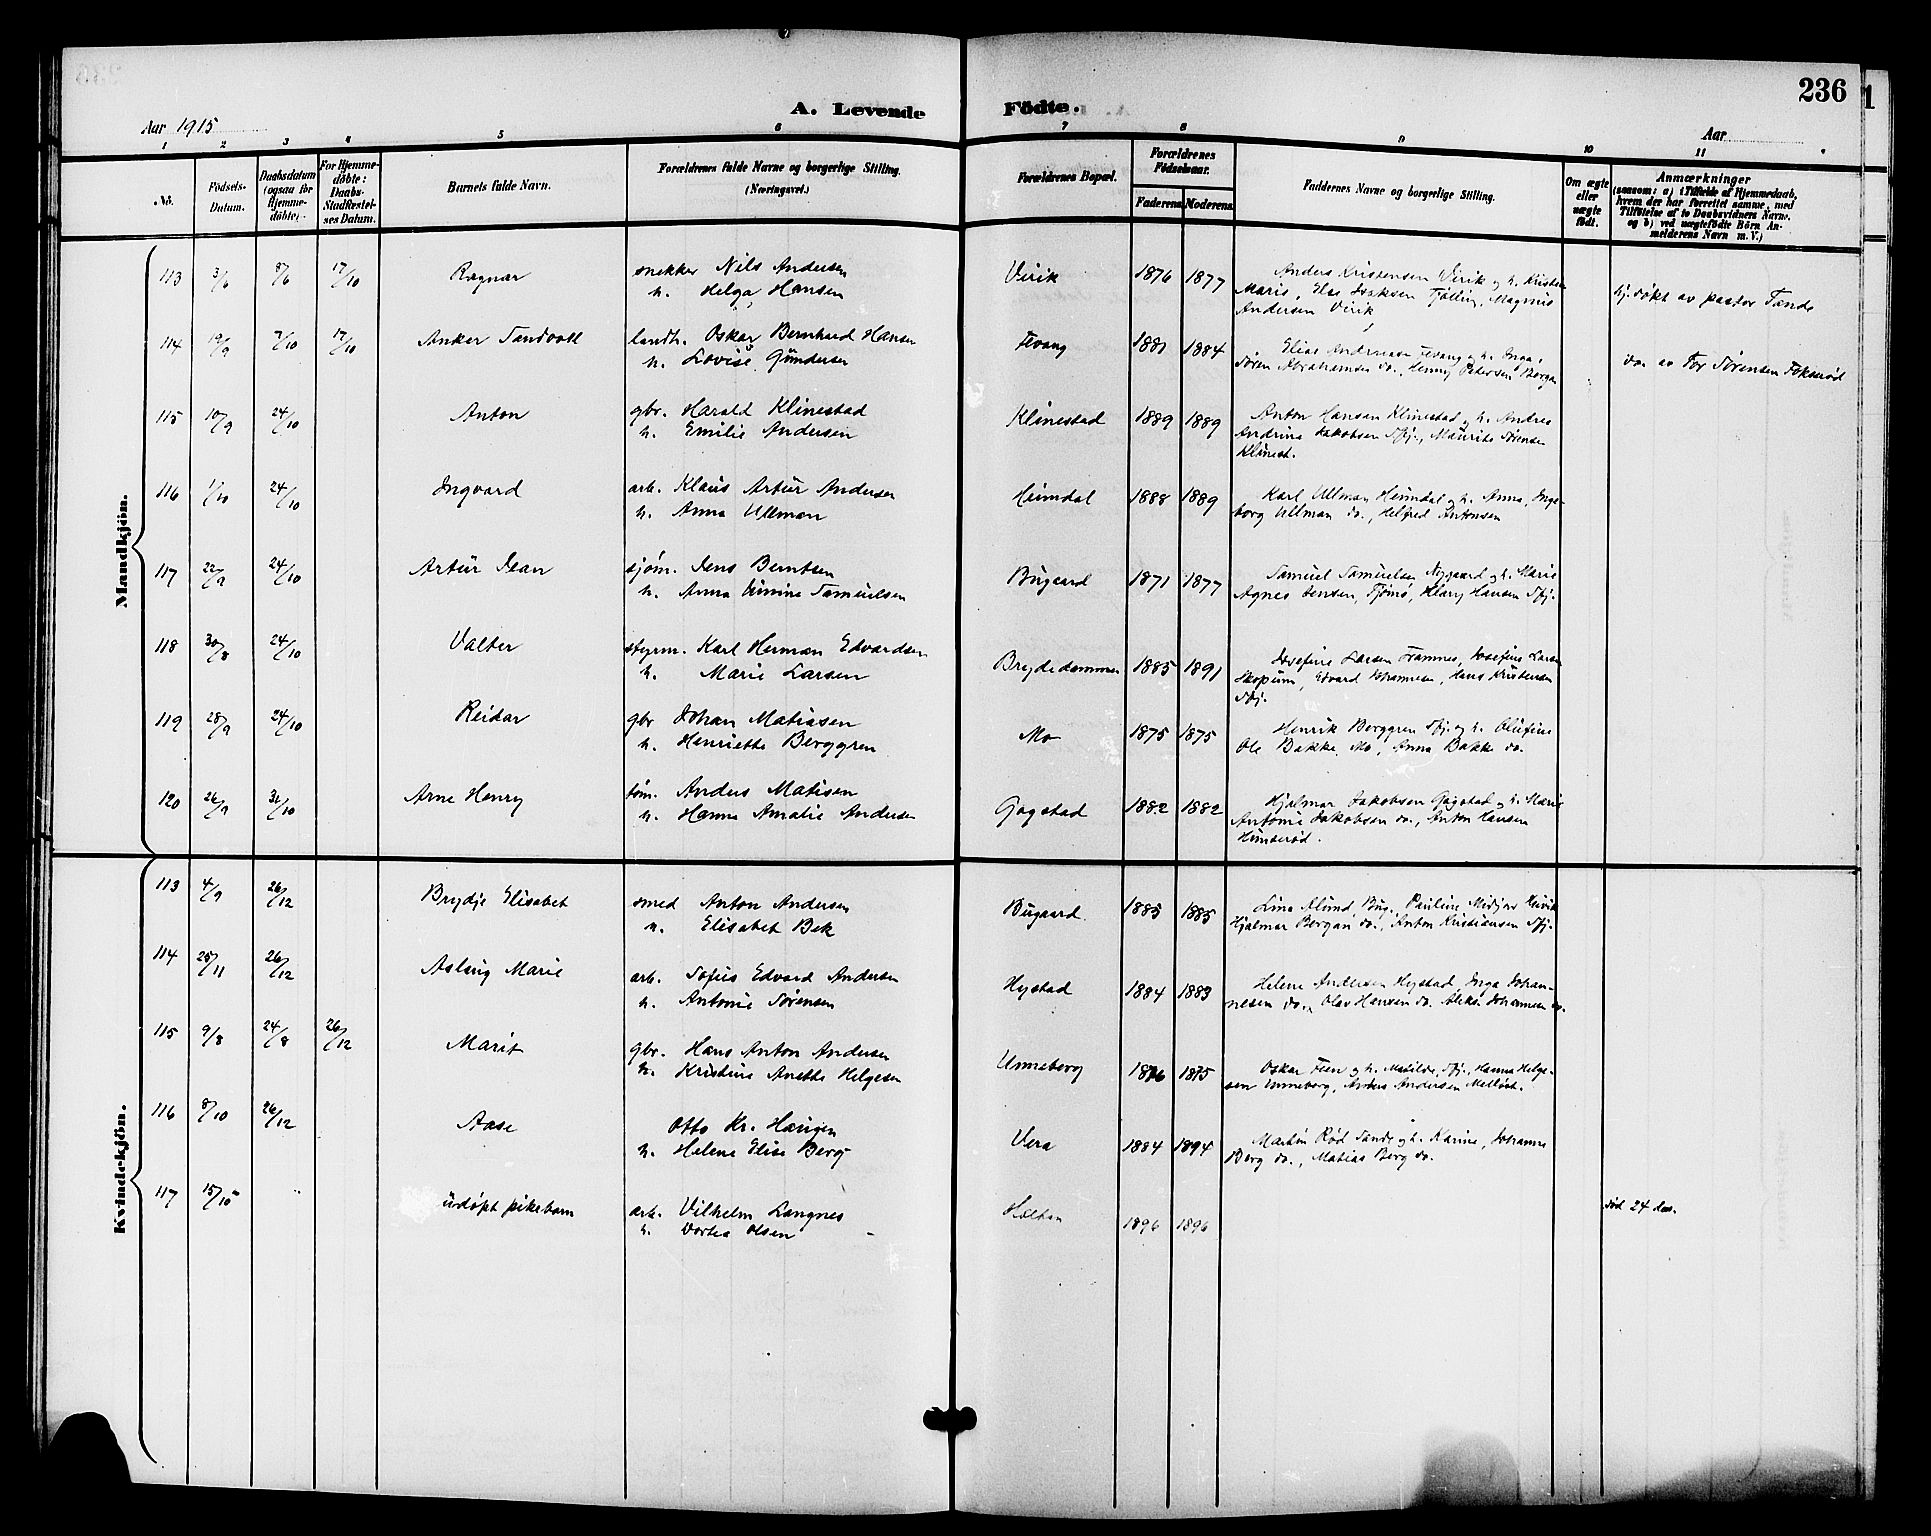 236
A. Levende Födte.
Aar 1915
Aar
1 2 3 4 5 6 7 8 9 10 11
No.
Födsels-Datum.
Daabsdatum (ogsaa for Hjemme-döbte).
For Hjemme-döbte: Daabs-Stadfæstel-ses Datum.
Barnets fulde Navn.
Forældrenes fulde Navne og borgerlige Stilling. (Næringsvei.)
Forældrenes Bopæl.
Forældrenes Födselsaar.
Faderens Moderens
Faddernes Navne og borgerlige Stilling.
Om ægte eller uægte födt.
Anmærkninger
(saasom: a) i Tilfælde af Hjemmedaab, hvem der har forrettet samme, med Tilföielse af to Daabsvidners Navne, og b) ved uægtefödte Börn An-melderens Navn m. V.)
Mandkjön.
113 3/6 8/6 17/10 Ragnar snekker Nils Andersen Virik 1876 1877 Anders Kristensen Virik og h. Kristen
h. Helga Hansen Maris, Else Isaksen Tjølling, Magnus
Andersen Virik
hj. døkt av pastor Tande
114 19/9 7/10 17/10 Anker Sandvoll landh. Oskar Bernhard Hansen Fevang 1881 1884 Elias Andreasen Fevang og h. Inga,
h. Lovise Gundersen Søren Abrahamsen do., Henny Petersen Bergan
do. av Tor Sørensen Fokserød
115 10/9 24/10 Anton gbr. Harald Klinestad Klinestad 1889 1889 Anton Hansen Klinestad og h. Andrea
h. Emilie Andersen Andrine Jakobsen Sfj., Maurits Sørensen
Klinest.
116 1/10 24/10 Ingvard arb. Klaus Artur Andersen Heimdal 1888 1889 Karl Ullman Heimdal og h. Anna, Inge-
h. Anna Ullman borg Ullman do., Helfred Antonsen
117 22/9 24/10 Artur Jean sjøm. Jens Berntsen Bugaard 1871 1877 Samuel Samuelsen Nygaard og h. Marie
h. Anna Samuelsen Agnes Jensen, Tjømø, Harry Hansen Sfj.
118 30/8 24/10 Valter styrm. Karl Herman Edvardsen Brydedammen 1885 1891 Josefine Larsen Framnes, Josefine Larsen
h. Marie Larsen Skopum, Edvard Johannesen, Hans Kristensen
Sfj.
119 28/9 24/10 Reidar gbr Johan Matiasen Mo 1875 1875 Henrik Berggren Sfj. og h. Olufine
h. Henriette Berggren Ole Bakke, Mo, Anna Bakke do.
120 26/9 31/10 Arne Henry tøm. Anders Matisen Gogstad 1882 1882 Hjalmar Jakobsen Gogstad og h. Marie
h. Hanna Amalie Andersen Antonie Jakobsen do., Anton Hansen
Hunserød.
Kvindekjön.
113 4/9 26/12 Brydje Elisabet smed Anton Andersen Bugaard 1885 1885 Lina Klund, Bug., Pauline
h. Elisabet Bek Hjalmar Bergan do., Anton Kristiansen Sfj.
114 25/11 26/12 Aslaug Marie arb. Sofus Edvard Andersen Hystad 1884 1883 Helene Andersen Hystad, Inga Johan-
h. Antonie Sørensen nesen do., Olav Hansen do. Johannesen do.
115 9/8 24/8 26/12 Marit gbr. Hans Anton Andersen Unneberg 1876 1875 Oskar Feen og h. Matilde, Sfj. Hanna Helge-
h. Kristine Anette Helgesen sen Unneberg, Anders Andersen
116 8/10 26/12 Aase Otto Kr. Haugen Vera 1884 1894 Martin Rød Sande og h. Karine, Johanne
h. Helene Elise Berg Berg do., Matias Berg do.
117 15/10 udøpt pikebarn arb. Vilhelm Langnes Holtan 1896 1896
h. Dortea Olsen
død 24 des.